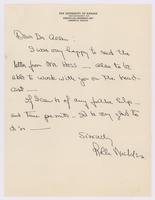 THE UNIVERSITY OF KANSAS
Dear Dr
I was very happy to read the
letter from Mr. Hess — also to be
able to work with you on the
If I can be of any further help
and time permits — I'd be very glad to
do so —
Sincerely